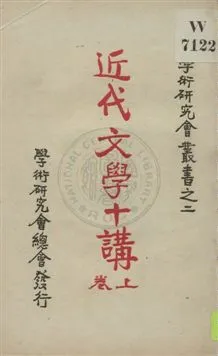 W
7122
學術研究會叢書之二
近代文學十講 上卷
學術研究會總會發行